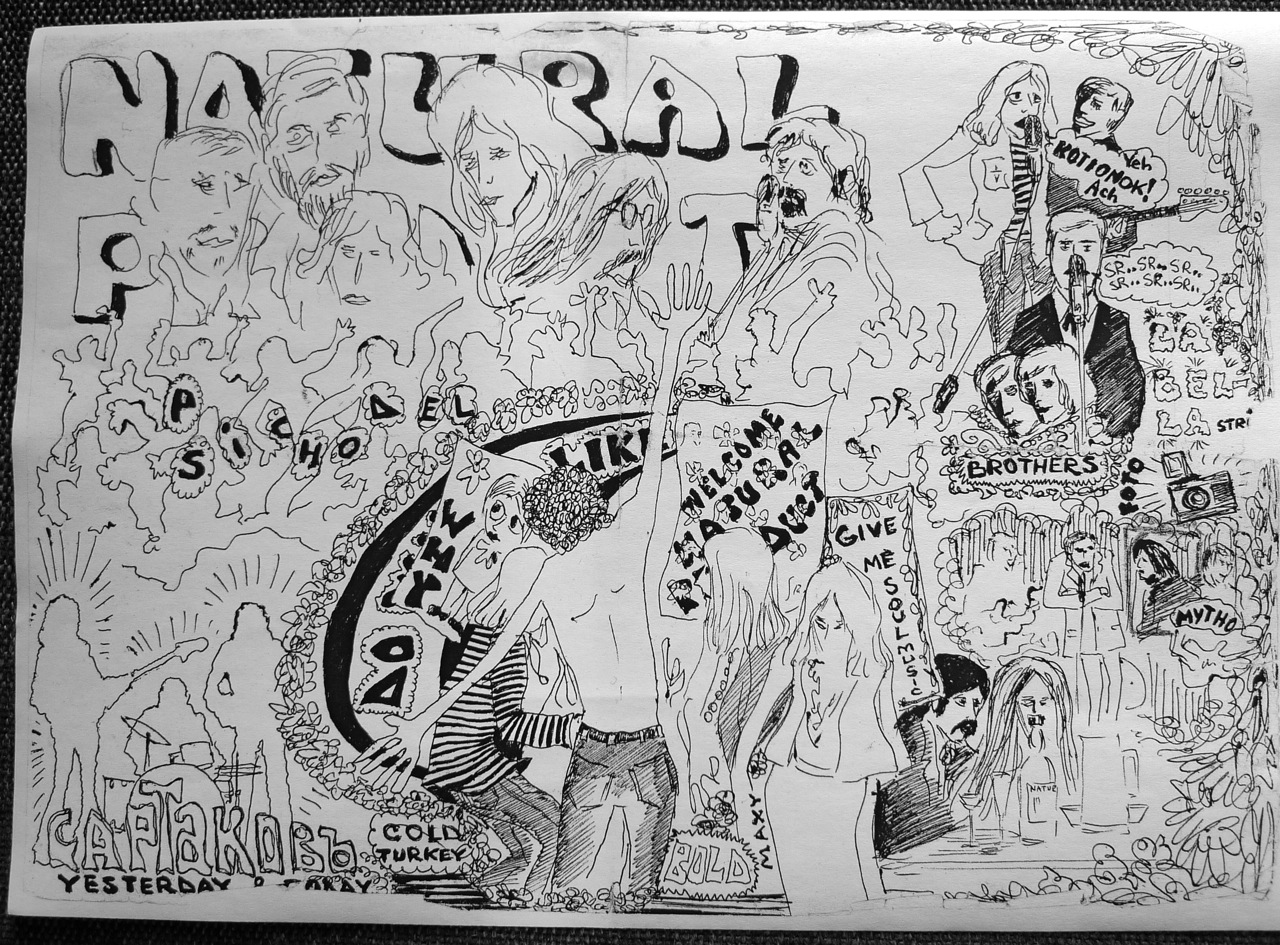 NATURAL
P T
PSICHODEL
LIKE
WHY
WELCOME
NATURAL
DUCT
GIVE
ME
SOUL
MUSIC
KOTIONOK!
Yeh
Ach
SR.. SR.. SR..
SR.. SR.. SR..
LA
BEL-
LA STRI
BROTHERS
FOTO
MYTHO
NATUR
САРТАКОВЪ
YESTERDAY
COLD
TURKEY
BOLD
WAXY